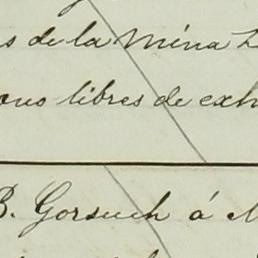 s de la Mina
ous libres de exh
B. Gorsuch á